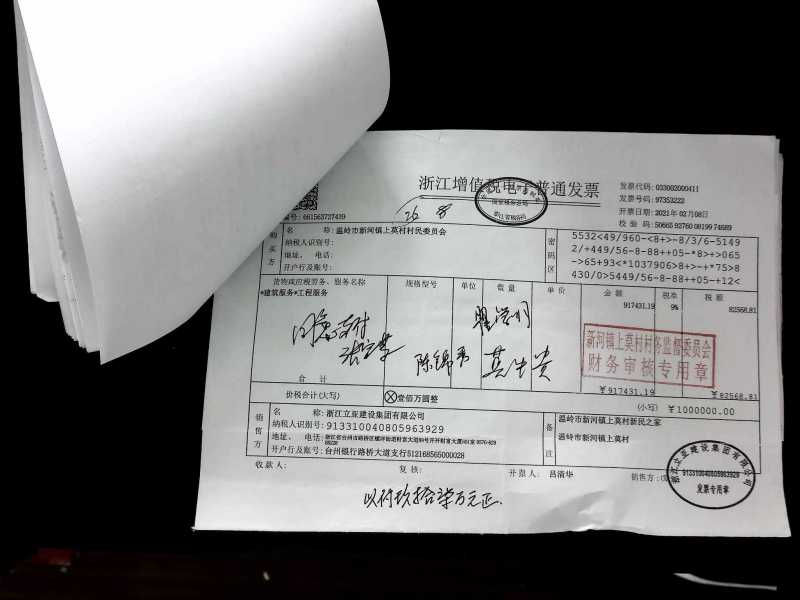 浙江增值税电子普通发票
发票代码: 033002000411
发票号码: 97353222
开票日期: 2021年02月08日
校验码: 50665 92760 08199 74689
编号: 661563727439
26 8
购买方
名称: 温岭市新河镇上莫村村民委员会
纳税人识别号:
地址、电话:
开户行及账号:
密码区
5532<49/960-<8+>-8/3/6-5149
2/+449/56-8-88++05-*8>+>065
->65+93<*1037906>8+>-+*75>8
430/0>5449/56-8-88++05-+12<
货物或应税劳务、服务名称 规格型号 单位 数量 单价 金额 税率 税额
*建筑服务*工程服务 917431.19 9% 82568.81
同意支付
陈锦秀
新河镇上莫村村务监督委员会
财务审核专用章
合计 ¥917431.19 ¥82568.81
价税合计(大写) ⊗壹佰万圆整 (小写) ¥1000000.00
销售方
名称: 浙江立亚建设集团有限公司
纳税人识别号: 913310040805963929
地址、电话:
开户行及账号: 台州银行路桥大道支行512168565000028
备注
温岭市新河镇上莫村新民之家
温岭市新河镇上莫村
收款人: 复核: 开票人: 吕清华 销售方:
浙江立亚建设集团有限公司
913310040805963929
发票专用章
以付玖拾柒万元正